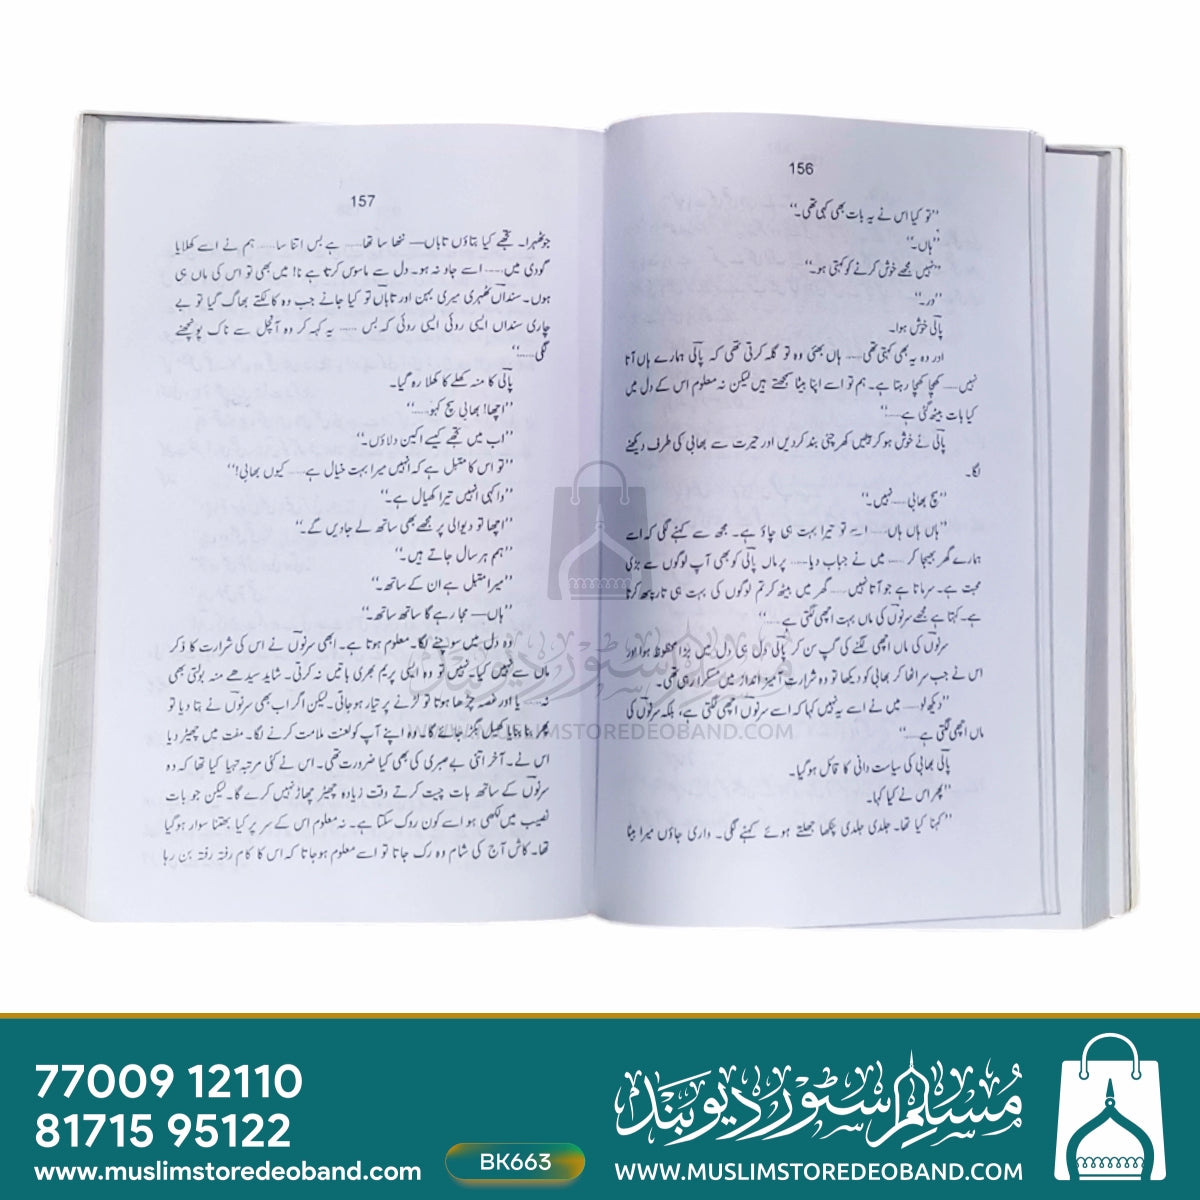 156
”تو کیا اس نے یہ بات بھی کہی تھی۔“
”ہاں۔“
”نہیں مجھے خوش کرنے کو کہتی ہو۔“
”در۔“
پالی خوش ہوا۔
اور وہ یہ بھی کہتی تھی...... ہاں بھئی وہ تو گلہ کرتی تھی کہ پالی ہمارے ہاں آتا
نہیں...... کھچا کھچا رہتا ہے۔ ہم تو اسے اپنا بیٹا سمجھتے ہیں لیکن نہ معلوم اس کے دل میں
کیا بات بیٹھ گئی ہے......“
پالی نے خوش ہو کر پیٹیں کھرچنی بند کر دیں اور حیرت سے بھابی کی طرف دیکھنے
لگا۔
”سچ بھابی...... نہیں۔“
”ہاں ہاں ہاں...... اسے تو تیرا بہت ہی چاؤ ہے۔ مجھ سے کہنے لگی کہ اسے
ہمارے گھر بھیجا کر...... میں نے جباب دیا...... پر ماں پالی کو بھی آپ لوگوں سے بڑی
محبت ہے۔ سرماتا ہے جو آتا نہیں...... گھر میں بیٹھ کر تم لوگوں کی بہت ہی تارپھ کرتا
ہے۔ کہتا ہے مجھے سرنوں کی ماں بہت اچھی لگتی ہے......“
سرنوں کی ماں اچھی لگنے کی گپ سن کر پالی دل ہی دل میں بڑا محظوظ ہوا اور
اس نے جب سر اٹھا کر بھابی کو دیکھا تو وہ شرارت آمیز انداز میں مسکرا رہی تھی۔
”دیکھ لو...... میں نے اسے یہ نہیں کہا کہ اسے سرنوں اچھی لگتی ہے، بلکہ سرنوں کی
ماں اچھی لگتی ہے......“
پالی بھابی کی سیاست دانی کا قائل ہو گیا۔
”پھر اس نے کیا کہا۔
”کہنا کیا تھا۔ جلدی جلدی پنکھا جھلتے ہوئے کہنے لگی۔ واری جاؤں میرا بیٹا
157
جو ٹھہرا۔ تجھے کیا بتاؤں تاباں— ننھا سا تھا...... ہے بس اتنا سا...... ہم نے اسے کھلایا
گودی میں...... اسے جاد نہ ہو۔ دل سے ماسوس کرتا ہے نا! میں بھی تو اس کی ماں ہی
ہوں۔ سنداں ٹھہری میری بہن اور تاباں تو کیا جانے جب وہ کالکتے بھاگ گیا تو بے
چاری سنداں ایسی روئی ایسی روئی کہ بس...... یہ کہہ کر وہ آنچل سے ناک پونچھنے
لگی......“
پالی کا منہ کھلے کا کھلا رہ گیا۔
”اچھا! بھابی سچ کہو......“
”اب میں تجھے کیسے اکین دلاؤں۔“
”تو اس کا متبل ہے کہ انہیں میرا بہت خیال ہے...... کیوں بھابی!“
”واکہی انہیں تیرا کھیال ہے۔“
”اچھا تو دیوالی پر مجھے بھی ساتھ لے جاویں گے۔“
”ہم ہر سال جاتے ہیں۔“
”میرا متبل ہے ان کے ساتھ۔“
”ہاں— مجا رہے گا ساتھ ساتھ۔“
وہ دل میں سوچنے لگا۔ معلوم ہوتا ہے۔ ابھی سرنوں نے اس کی شرارت کا ذکر
ماں سے نہیں کیا۔ نہیں تو وہ ایسی پریم بھری باتیں نہ کرتی۔ شاید سیدھے منہ بولتی بھی
نہ...... یا اور غصہ چڑھا ہوتا تو لڑنے پر تیار ہو جاتی۔ لیکن اگر اب بھی سرنوں نے بتا دیا تو
پھر بنا بنایا کھیل بگڑ جائے گا۔ وہ اپنے آپ کو لعنت ملامت کرنے لگا۔ مفت میں چھیڑ دیا
اس نے۔ آخر اتنی بے صبری کی بھی کیا ضرورت تھی۔ اس نے کئی مرتبہ تہیا کیا تھا کہ وہ
سرنوں کے ساتھ بات چیت کرتے وقت زیادہ چھیڑ چھاڑ نہیں کرے گا۔ لیکن جو بات
نصیب میں لکھی ہو اسے کون روک سکتا ہے۔ نہ معلوم اس کے سر پر کیا بھتنا سوار ہو گیا
تھا۔ کاش آج کی شام وہ رک جاتا تو اسے معلوم ہو جاتا کہ اس کا کام رفتہ رفتہ بن رہا
مسلم سٹور دیوبند
WWW.MUSLIMSTOREDEOBAND.COM
77009 12110
81715 95122
www.muslimstoredeoband.com
BK663
مسلم سٹور دیوبند
WWW.MUSLIMSTOREDEOBAND.COM